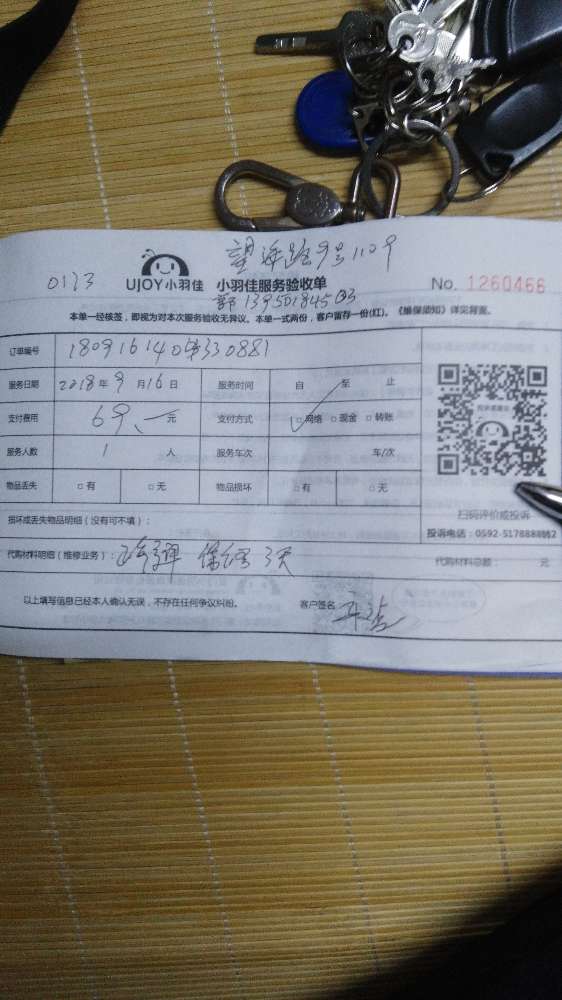 望海路9号1109
0123 UJOY小羽佳 小羽佳服务验收单 No. 1260466
本单一经核签,即视为对本次服务验收无异议。本单一式两份,客户留存一份(红)。《维保须知》详见背面。
订单编号
服务日期 2018年9月16日 服务时间 自 至 止
支付费用 69 元 支付方式 □网络 □现金 □转账
服务人数 1 人 服务车次 车/次
物品丢失 □有 □无 物品损坏 □有 □无
扫码评价或投诉
损坏或丢失物品明细(没有可不填):
投诉电话:0592-5178888转2
代购材料明细(维修业务): 3天 代购材料总额: 元
以上填写信息已经本人确认无误,不存在任何争议纠纷。 客户签名: